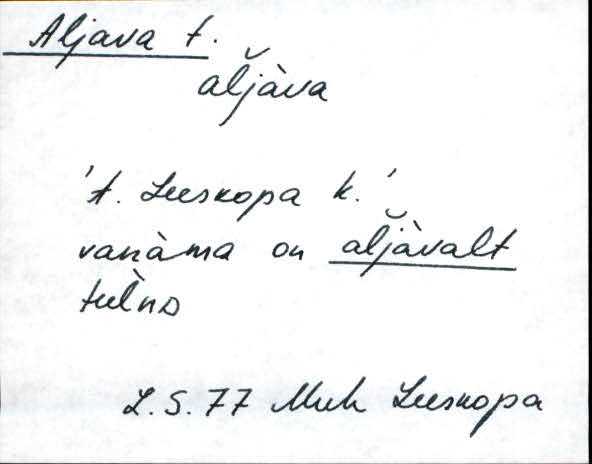 Aljava t.
aľjàva
't. Leeskopa k.'
vanàma on aľjàvalt
tuĺ̀no
L.S.77 Muh Leeskopa